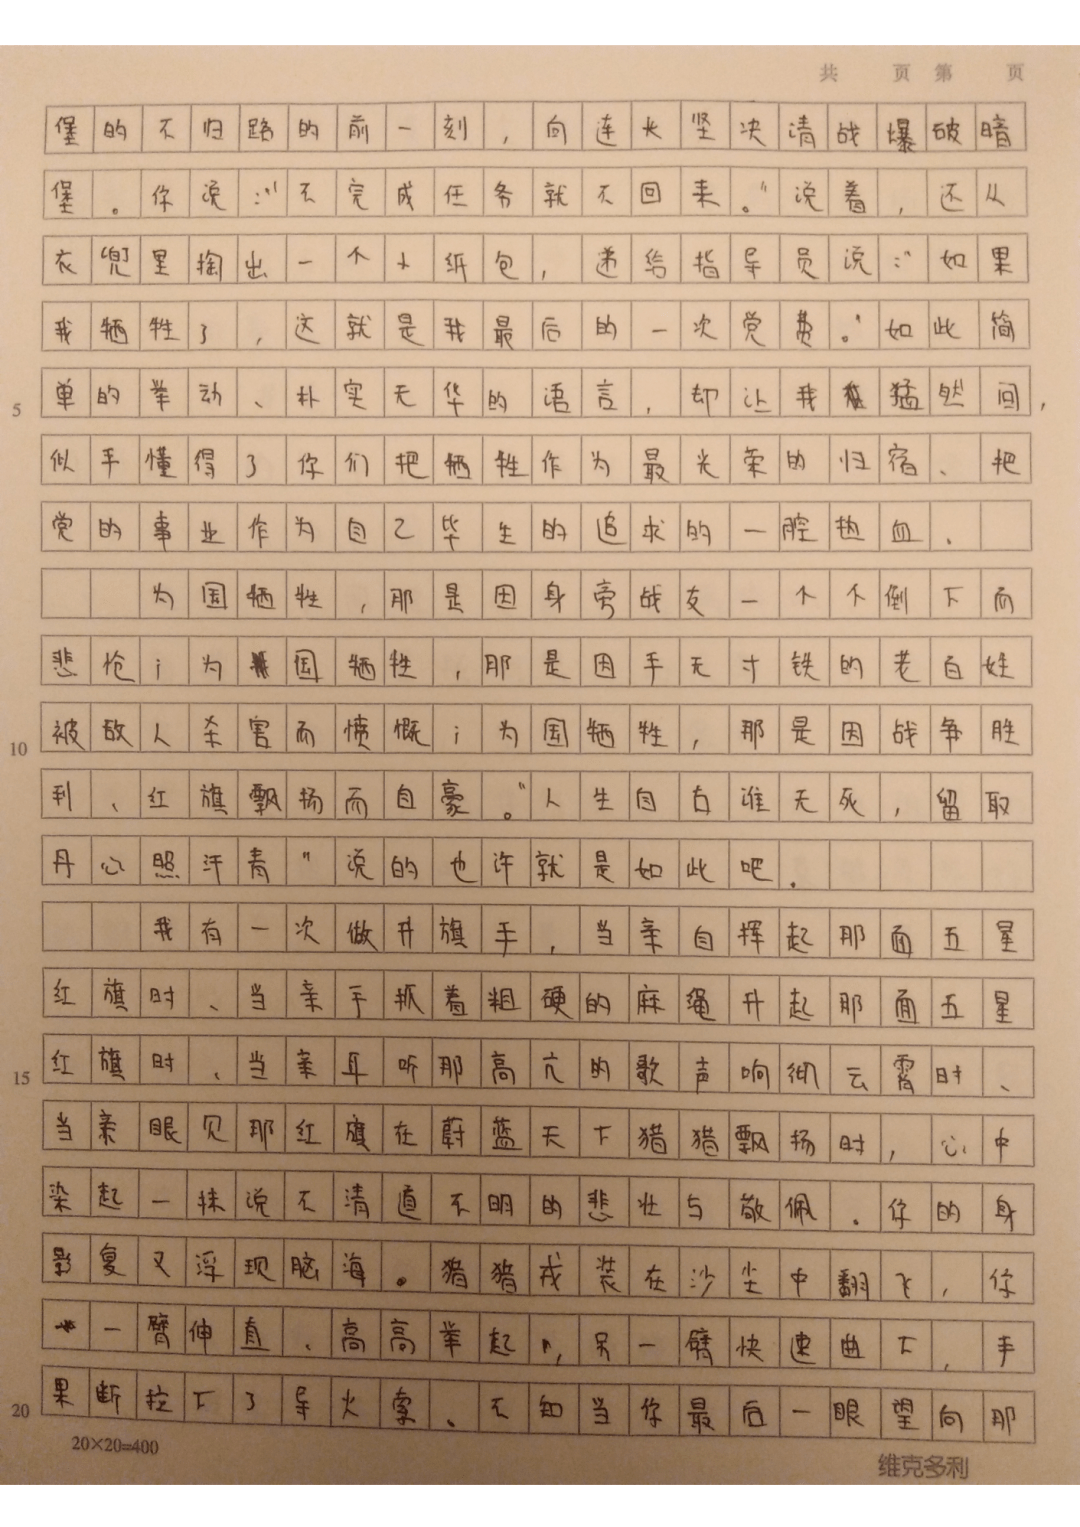 共 页 第 页
堡的不归路的前一刻，向连长坚决清战爆破暗
堡。你说：“不完成任务就不回来。”说着，还从
衣兜里掏出一个小纸包，递给指导员说：“如果
我牺牲了，这就是我最后的一次党费。”如此简
5 单的举动、朴实无华的语言，却让我猛然间，
似乎懂得了你们把牺牲作为最光荣的归宿、把
党的事业作为自己毕生的追求的一腔热血.
为国牺牲，那是因身旁战友一个个倒下而
悲怆；为国牺牲，那是因手无寸铁的老百姓
10 被敌人杀害而愤慨；为国牺牲，那是因战争胜
利、红旗飘扬而自豪。“人生自古谁无死，留取
丹心照汗青”说的也许就是如此吧.
我有一次做升旗手，当亲自挥起那面五星
红旗时、当亲手抓着粗硬的麻绳升起那面五星
15 红旗时、当亲耳听那高亢的歌声响彻云霄时、
当亲眼见那红旗在蔚蓝天下猎猎飘扬时，心中
染起一抹说不清道不明的悲壮与敬佩.你的身
影复又浮现脑海。猎猎戎装在沙尘中翻飞，你
一臂伸直、高高举起，另一臂快速曲下，手
20 果断拉下了导火索、不知当你最后一眼望向那
20×20=400
维克多利